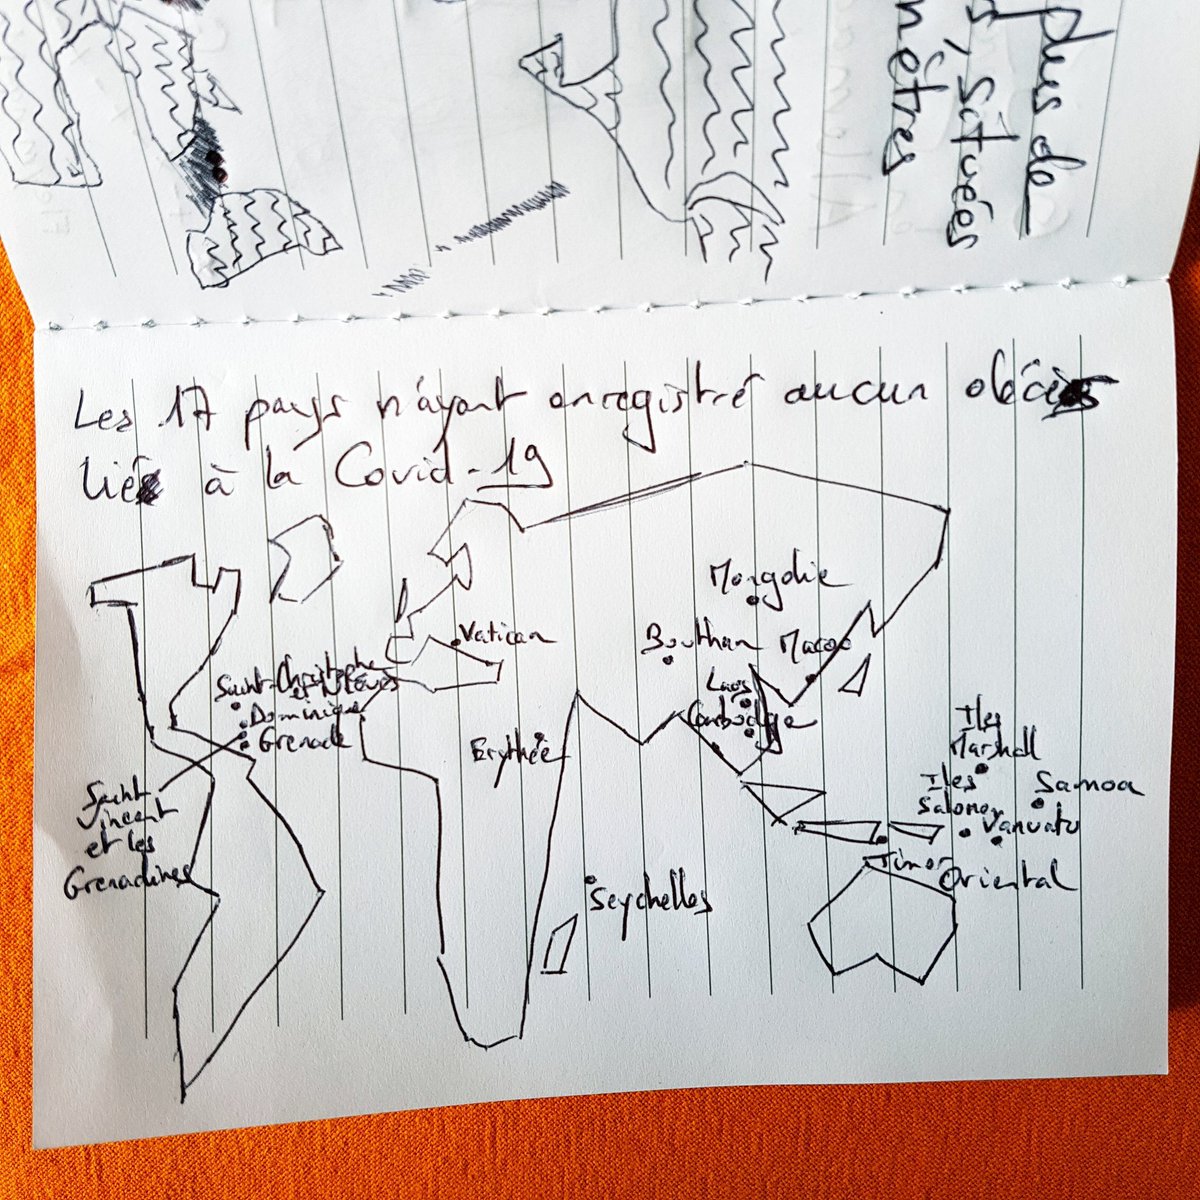 plus de
s, situées
mètres
Les 17 pays n'ayant enregistré aucun décès
liés à la Covid-19
Mongolie
Vatican
Bouthan
Macao
Saint-Christophe
et Niévès
Laos
Dominique
Cambodge
Grenade
Erythée
Iles
Marshall
Iles
Salomon
Samoa
Vanuatu
Saint
Vincent
et les
Grenadines
Timor Oriental
Seychelles